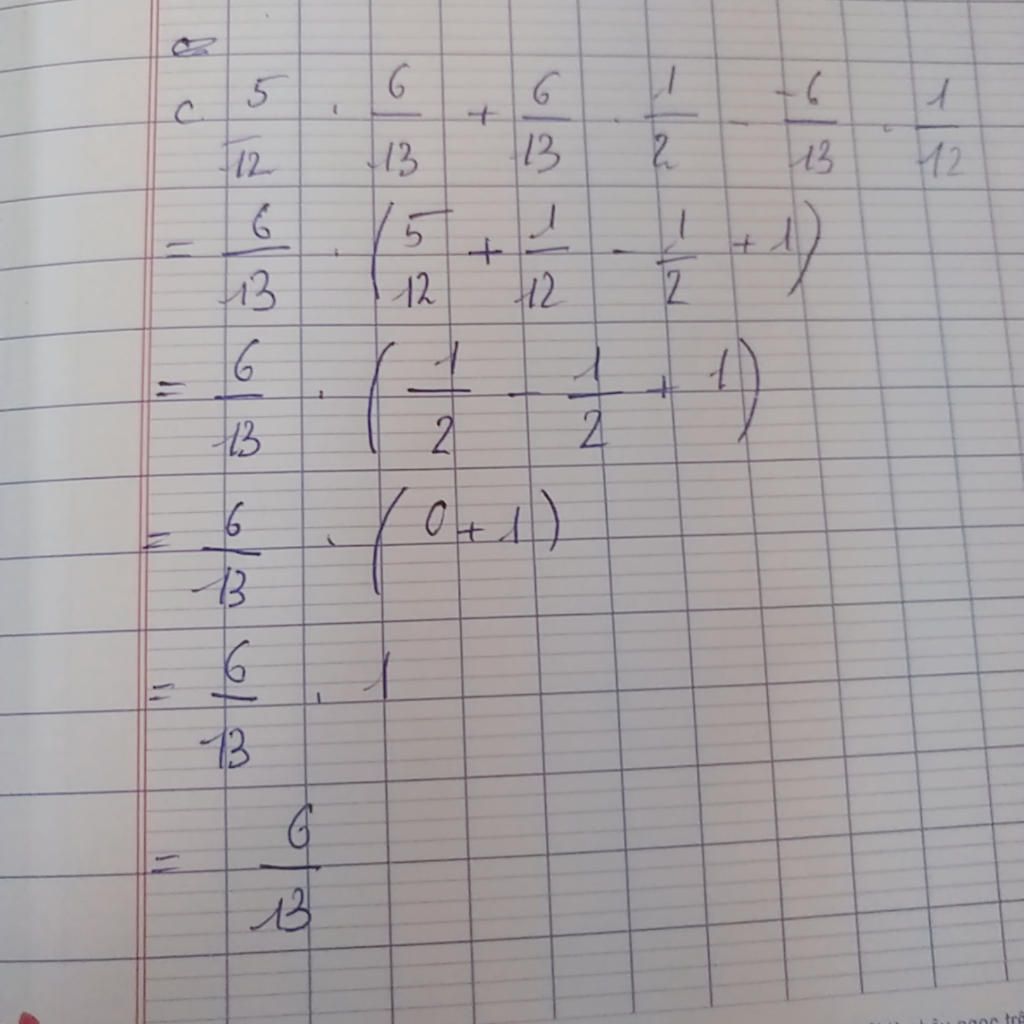 c 5/12 . 6/13 + 6/13 . 1/2 - -6/13 . 1/12
= 6/13 . (5/12 + 1/12 - 1/2 + 1)
= 6/13 . (1/2 - 1/2 + 1)
= 6/13 . (0 + 1)
= 6/13 . 1
= 6/13